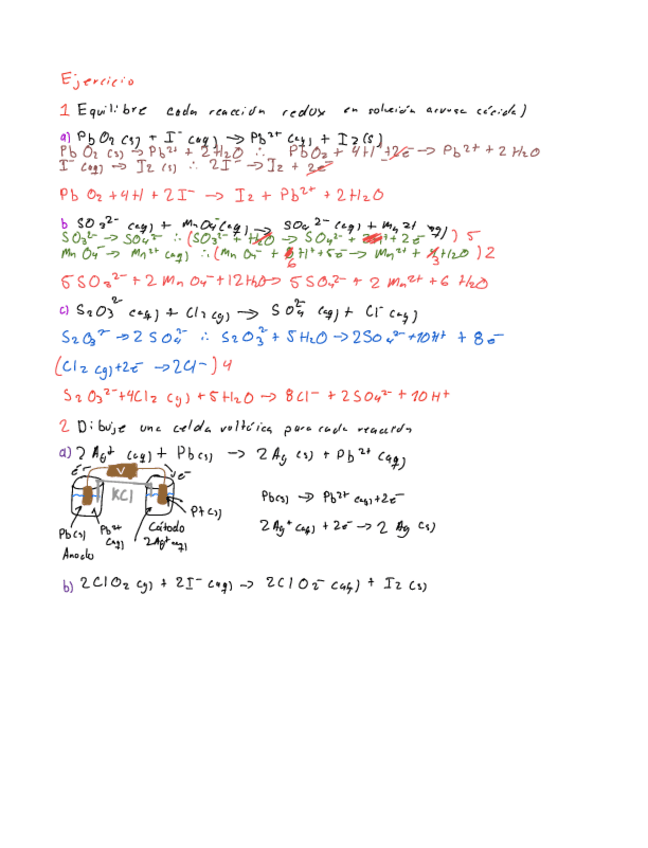 Ejercicio
1 Equilibre cada reacción redox en solución acuosa (ácida)
a) PbO2 (s) + I⁻ (aq) → Pb²⁺ (aq) + I2(s)
PbO2 (s) → Pb²⁺ + 2H2O ∴ PbO2 + 4H⁺ + 2e⁻ → Pb²⁺ + 2H2O
I⁻ (aq) → I2 (s) ∴ 2I⁻ → I2 + 2e⁻
PbO2 + 4H + 2I⁻ → I2 + Pb²⁺ + 2H2O
b SO3²⁻ (aq) + MnO4⁻ (aq) → SO4²⁻ (aq) + Mn²⁺ (aq)
SO3²⁻ → SO4²⁻ ∴ (SO3²⁻ + H2O → SO4²⁻ + 2H⁺ + 2e⁻) 5
MnO4⁻ → Mn²⁺ (aq) ∴ (MnO4⁻ + 6H⁺ + 5e⁻ → Mn²⁺ + 3H2O) 2
5SO3²⁻ + 2MnO4⁻ + 12H → 5SO4²⁻ + 2Mn²⁺ + 6H2O
c) S2O3²⁻ (aq) + Cl2 (g) → SO4²⁻ (aq) + Cl⁻ (aq)
S2O3²⁻ → 2SO4²⁻ ∴ S2O3²⁻ + 5H2O → 2SO4²⁻ + 10H⁺ + 8e⁻
(Cl2 (g) + 2e⁻ → 2Cl⁻) 4
S2O3²⁻ + 4Cl2 (g) + 5H2O → 8Cl⁻ + 2SO4²⁻ + 10H⁺
2 Dibuje una celda voltáica para cada reacción
a) 2Ag⁺ (aq) + Pb(s) → 2Ag (s) + Pb²⁺ (aq)
e⁻ V e⁻
KCl
Pt(s)
Pb(s) → Pb²⁺ (aq) + 2e⁻
Pb(s) Pb²⁺ (aq) Cátodo 2Ag⁺ (aq)
Anodo
2Ag⁺ (aq) + 2e⁻ → 2Ag (s)
b) 2ClO2 (g) + 2I⁻ (aq) → 2ClO2⁻ (aq) + I2 (s)